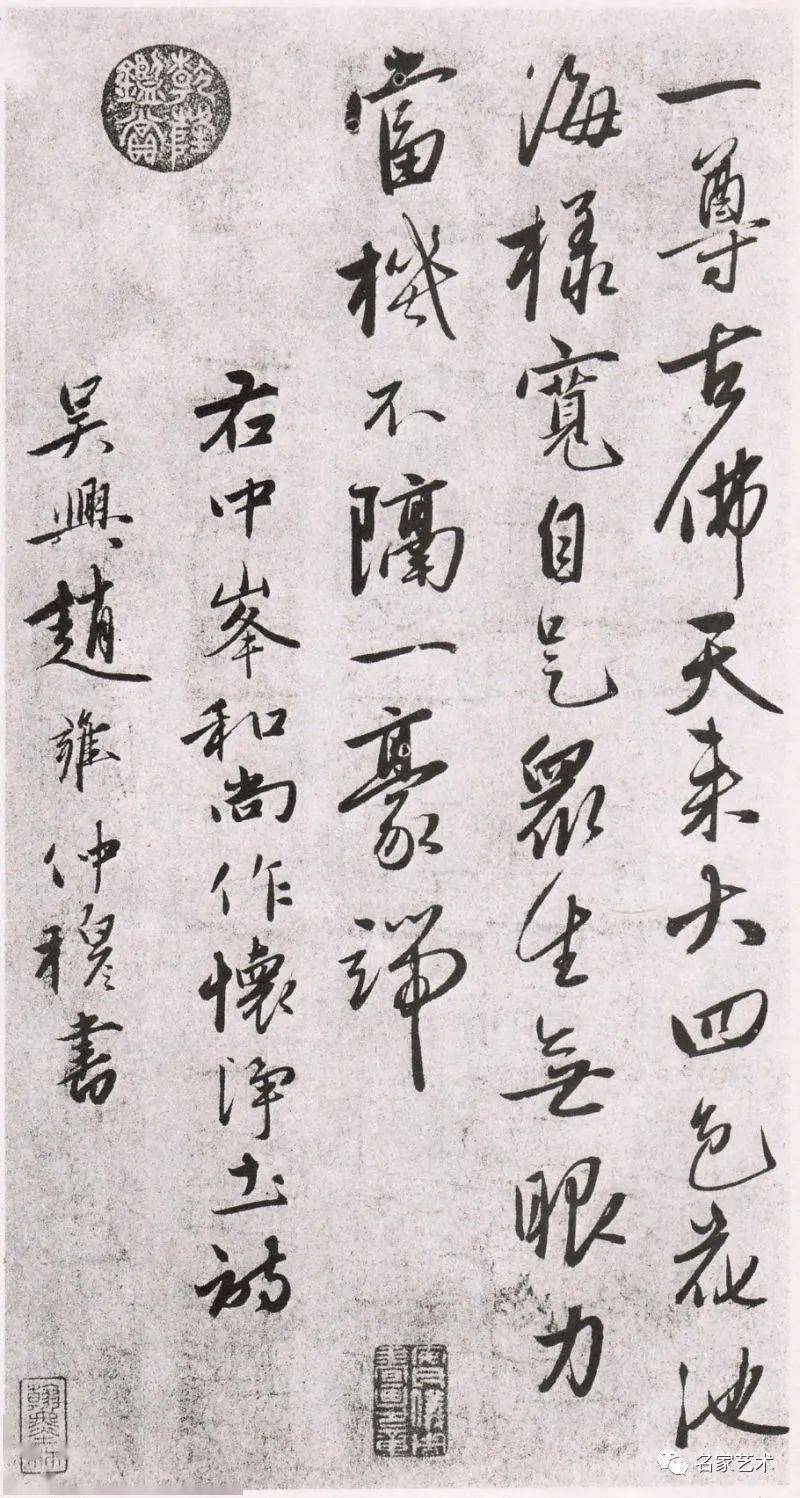 一尊古佛天來大四色花池
海樣寬自是眾生無眼力
當機不隔一豪端
右中峯和尚作懷淨土詩
吳興趙雍仲穆書
乾隆鑑賞
名家艺术